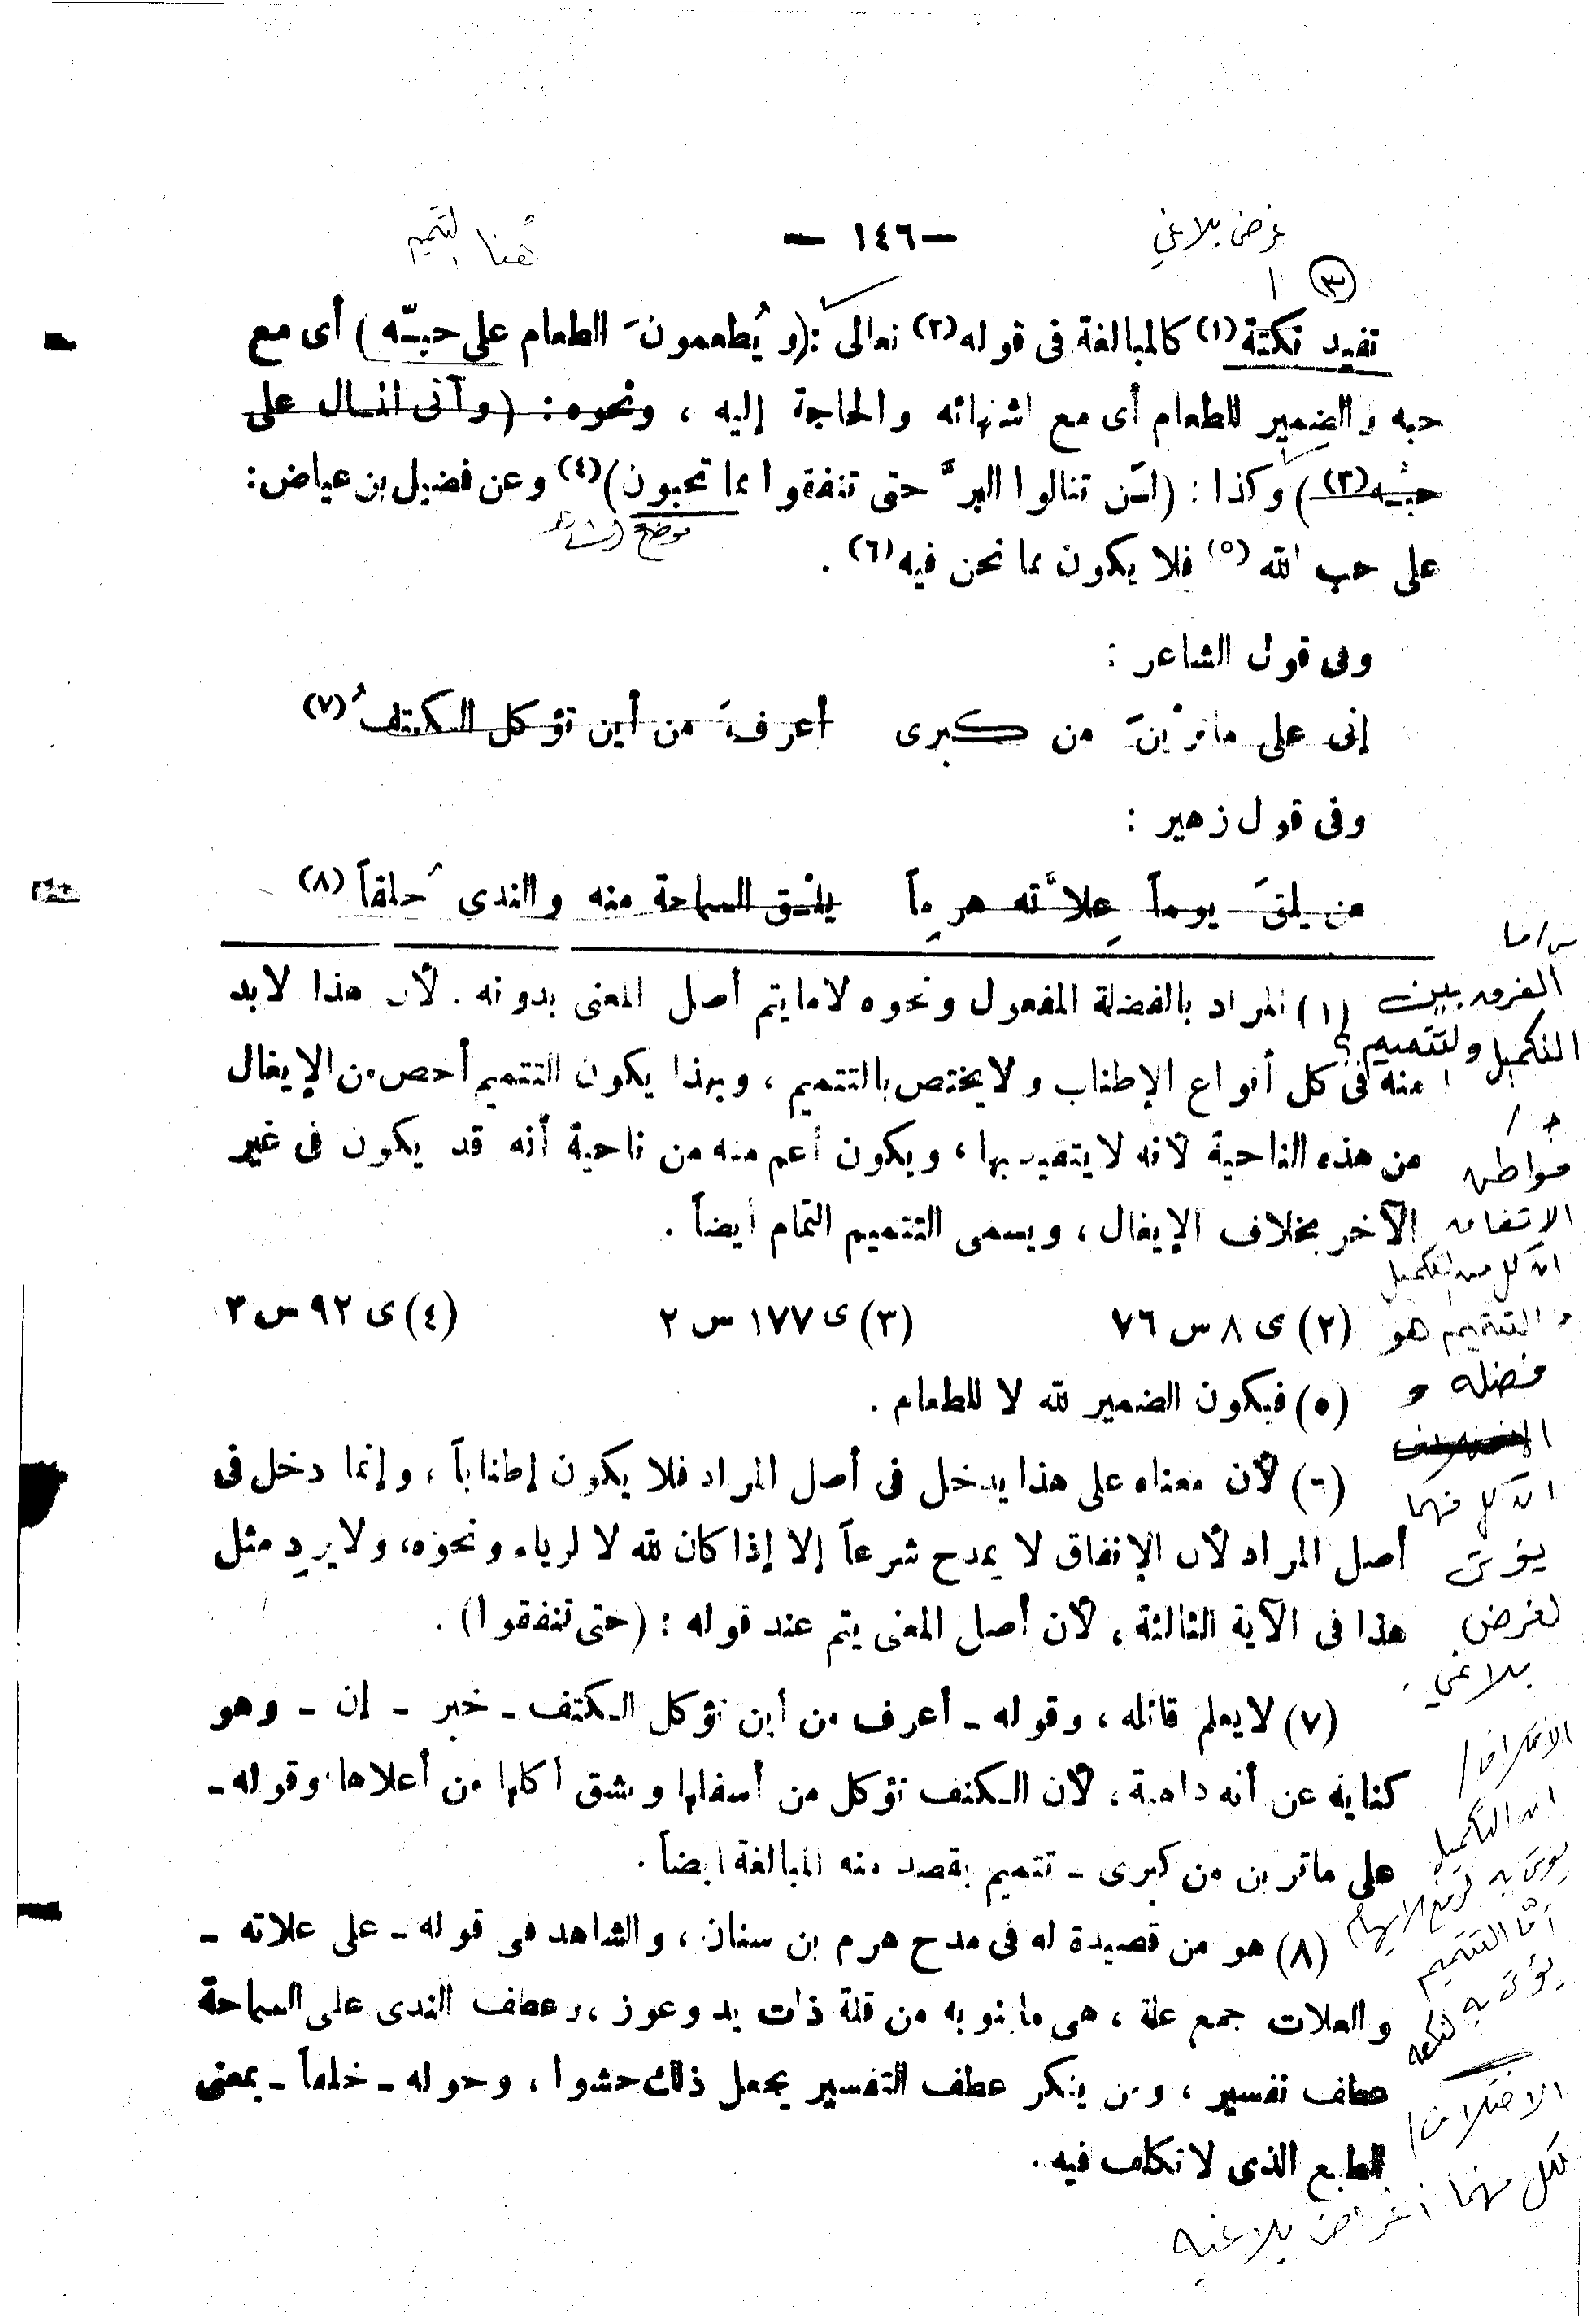 غرض بلاغي
— ١٤٦ —
هنا التتميم
٣
تفيد نكتة (١) كالمبالغة فى قوله (٢) تعالى : (و يُطعمونَ الطعام على حبـّه ) أى مع
حبه والضمير للطعام أى مع اشتهائه والحاجة إليه ، ونحوه : (وآتى المـال على
حبـّه (٣) ) وكذا : (لـَن تنالوا البرَّ حتى تنفقوا مما تحبون) (٤) وعن فضيل بن عياض :
موضع الشاهد
على حب الله (٥) فلا يكون مما نحن فيه (٦) .
وفى قول الشاعر :
إنى على ماترْينَ من كبرى أعرفُ من أين تؤكل الـكتفُ (٧)
وفى قول زهير :
من يلقَ يوماً عِلاَّته هرِماً يلـْق السماحة منه والندى خُلقاً (٨)
س/ ما
الفرق بين
التكميل والتتميم ؟
(١) المراد بالفضلة المفعول ونحوه لا مايتم أصل المعنى بدونه . لأن هذا لابد
منه فى كل أنواع الإطناب ولا يختص بالتتميم ، وبهذا يكون التتميم أخص من الإيغال
من هذه الناحية لأنه لا يتقيد بها ، ويكون أعم منه من ناحية أنه قد يكون فى غير
الآخر بخلاف الإيغال ، ويسمى التتميم التمام أيضاً .
ج /
مواطن
الاتفاق
ان كل من التكميل
و التتميم هو
فضله و
ان كل منهما
يؤتى
لغرض
بلاغي .
(٢) ى ٨ س ٧٦ (٣) ى ١٧٧ س ٢ (٤) ى ٩٢ س ٣
(٥) فيكون الضمير لله لا للطعام .
(٦) لأن معناه على هذا يدخل فى أصل المراد فلا يكون إطناباً ، وإنما دخل فى
أصل المراد لأن الإنفاق لا يمدح شرعاً إلا إذا كان لله لا لرياء ونحوه، ولا يرد مثل
هذا فى الآية الثالثة ، لأن أصل المعنى يتم عند قوله : (حتى تنفقوا) .
(٧) لا يعلم قائله ، وقوله ـ أعرف من أين تؤكل الـكتف ـ خبر ـ إن ـ وهو
كناية عن أنه داهية ، لأن الـكتف تؤكل من أسفلها ويشق أكلها من أعلاها وقوله ـ
على ماترين من كبرى ـ تتميم يقصد منه المبالغة أيضاً .
(٨) هو من قصيدة له فى مدح هرم بن سنان ، والشاهد فى قوله ـ على علاته ـ
والعلات جمع علة ، هى ماينو به من قلة ذات يد وعوز ، وعطف الندى على السماحة
عطف تفسير ، ومن ينكر عطف التفسير يجعل ذلك حشوا ، وقوله ـ خلقاً ـ بمعنى
الطبع الذى لا تكلف فيه .
ان التكميل
يؤتى به لرفع الايهام
أمّا التتميم
يؤتى به لنكته
الاختلاف /
لكل منهما أغراض بلاغيه